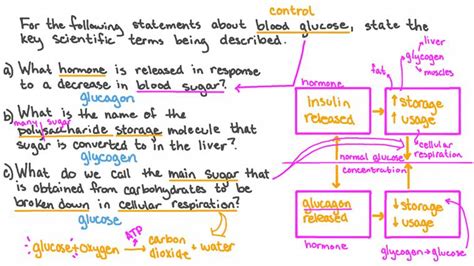 control
For the following statements about blood glucose, state the
key scientific terms being described.
a) What hormone is released in response
to a decrease in blood sugar?
glucagon
b) What is the name of the
many sugar
polysaccharide storage molecule that
sugar is converted to in the liver?
glycogen
c) What do we call the main sugar that
is obtained from carbohydrates to be
broken down in cellular respiration?
glucose
ATP
glucose + oxygen → carbon dioxide + water
liver
glycogen
muscles
fat
hormone
Insulin
released
↑ storage
↑ usage
cellular
respiration
normal glucose
concentration
glucagon
released
hormone
↓ storage
↓ usage
glycogen → glucose